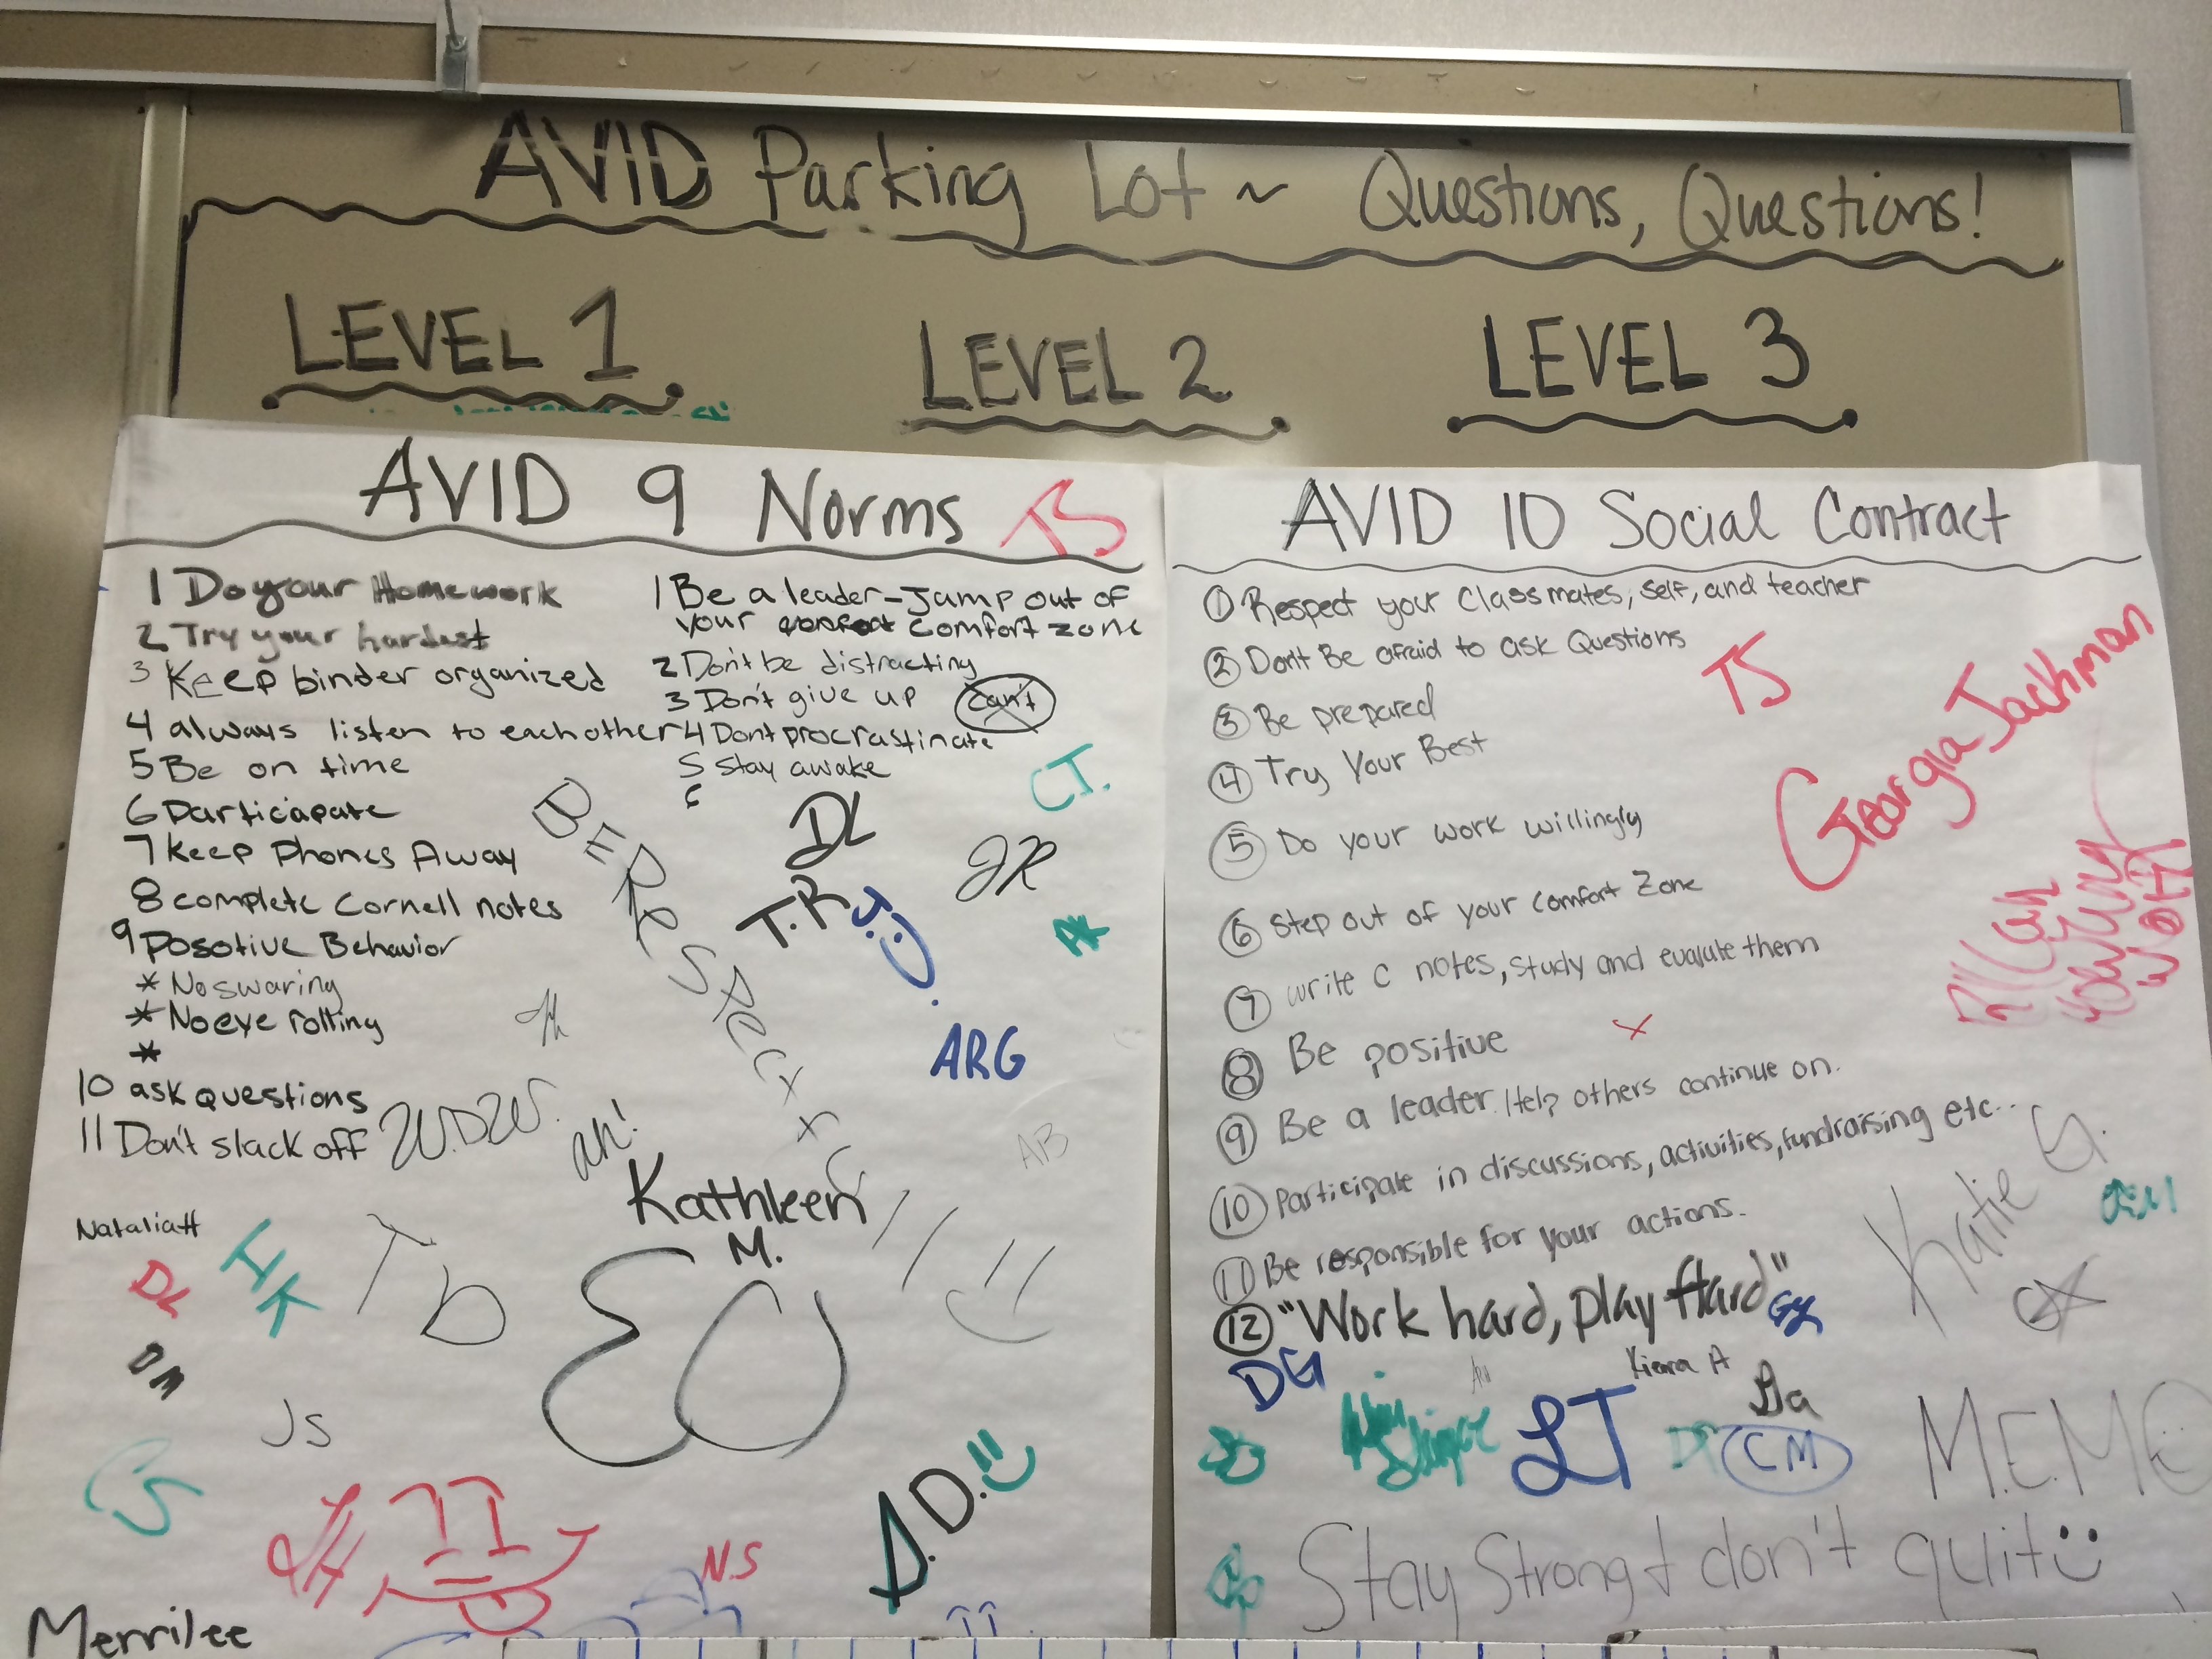 AVID Parking Lot ~ Questions, Questions!
LEVEL 1
LEVEL 2
LEVEL 3
AVID 9 Norms
TS
1 Do your Homework
2 Try your hardest
3 Keep binder organized
4 always listen to each other
5 Be on time
6 Particapate
7 Keep Phones Away
8 complete Cornell notes
9 Posotive Behavior
* No swaring
* No eye rolling
*
10 ask questions
11 Don't slack off
1 Be a leader - Jump out of
your comfort zone
2 Don't be distracting
3 Don't give up can't
4 Dont procrastinate
5 Stay awake
6
CJ.
DL
JR
T.R
J.J.
AK
ARG
AB
Kathleen
M.
Natalia H
HK
DL
TD
DM
JS
CS
A.D.
N.S
Merrilee
AVID 10 Social Contract
① Respect your classmates, self, and teacher
② Dont Be afraid to ask Questions
③ Be prepared
④ Try Your Best
⑤ Do your work willingly
⑥ Step out of your comfort zone
⑦ write C notes, study and evaluate them
⑧ Be positive
⑨ Be a leader. Help others continue on.
⑩ Participate in discussions, activities, fundraising etc...
⑪ Be responsible for your actions.
⑫ "Work hard, play Hard"
TS
Georgia Jackman
Katie G.
DG
Kiera A
LT
CM
M.E.M
Stay Strong + don't quit